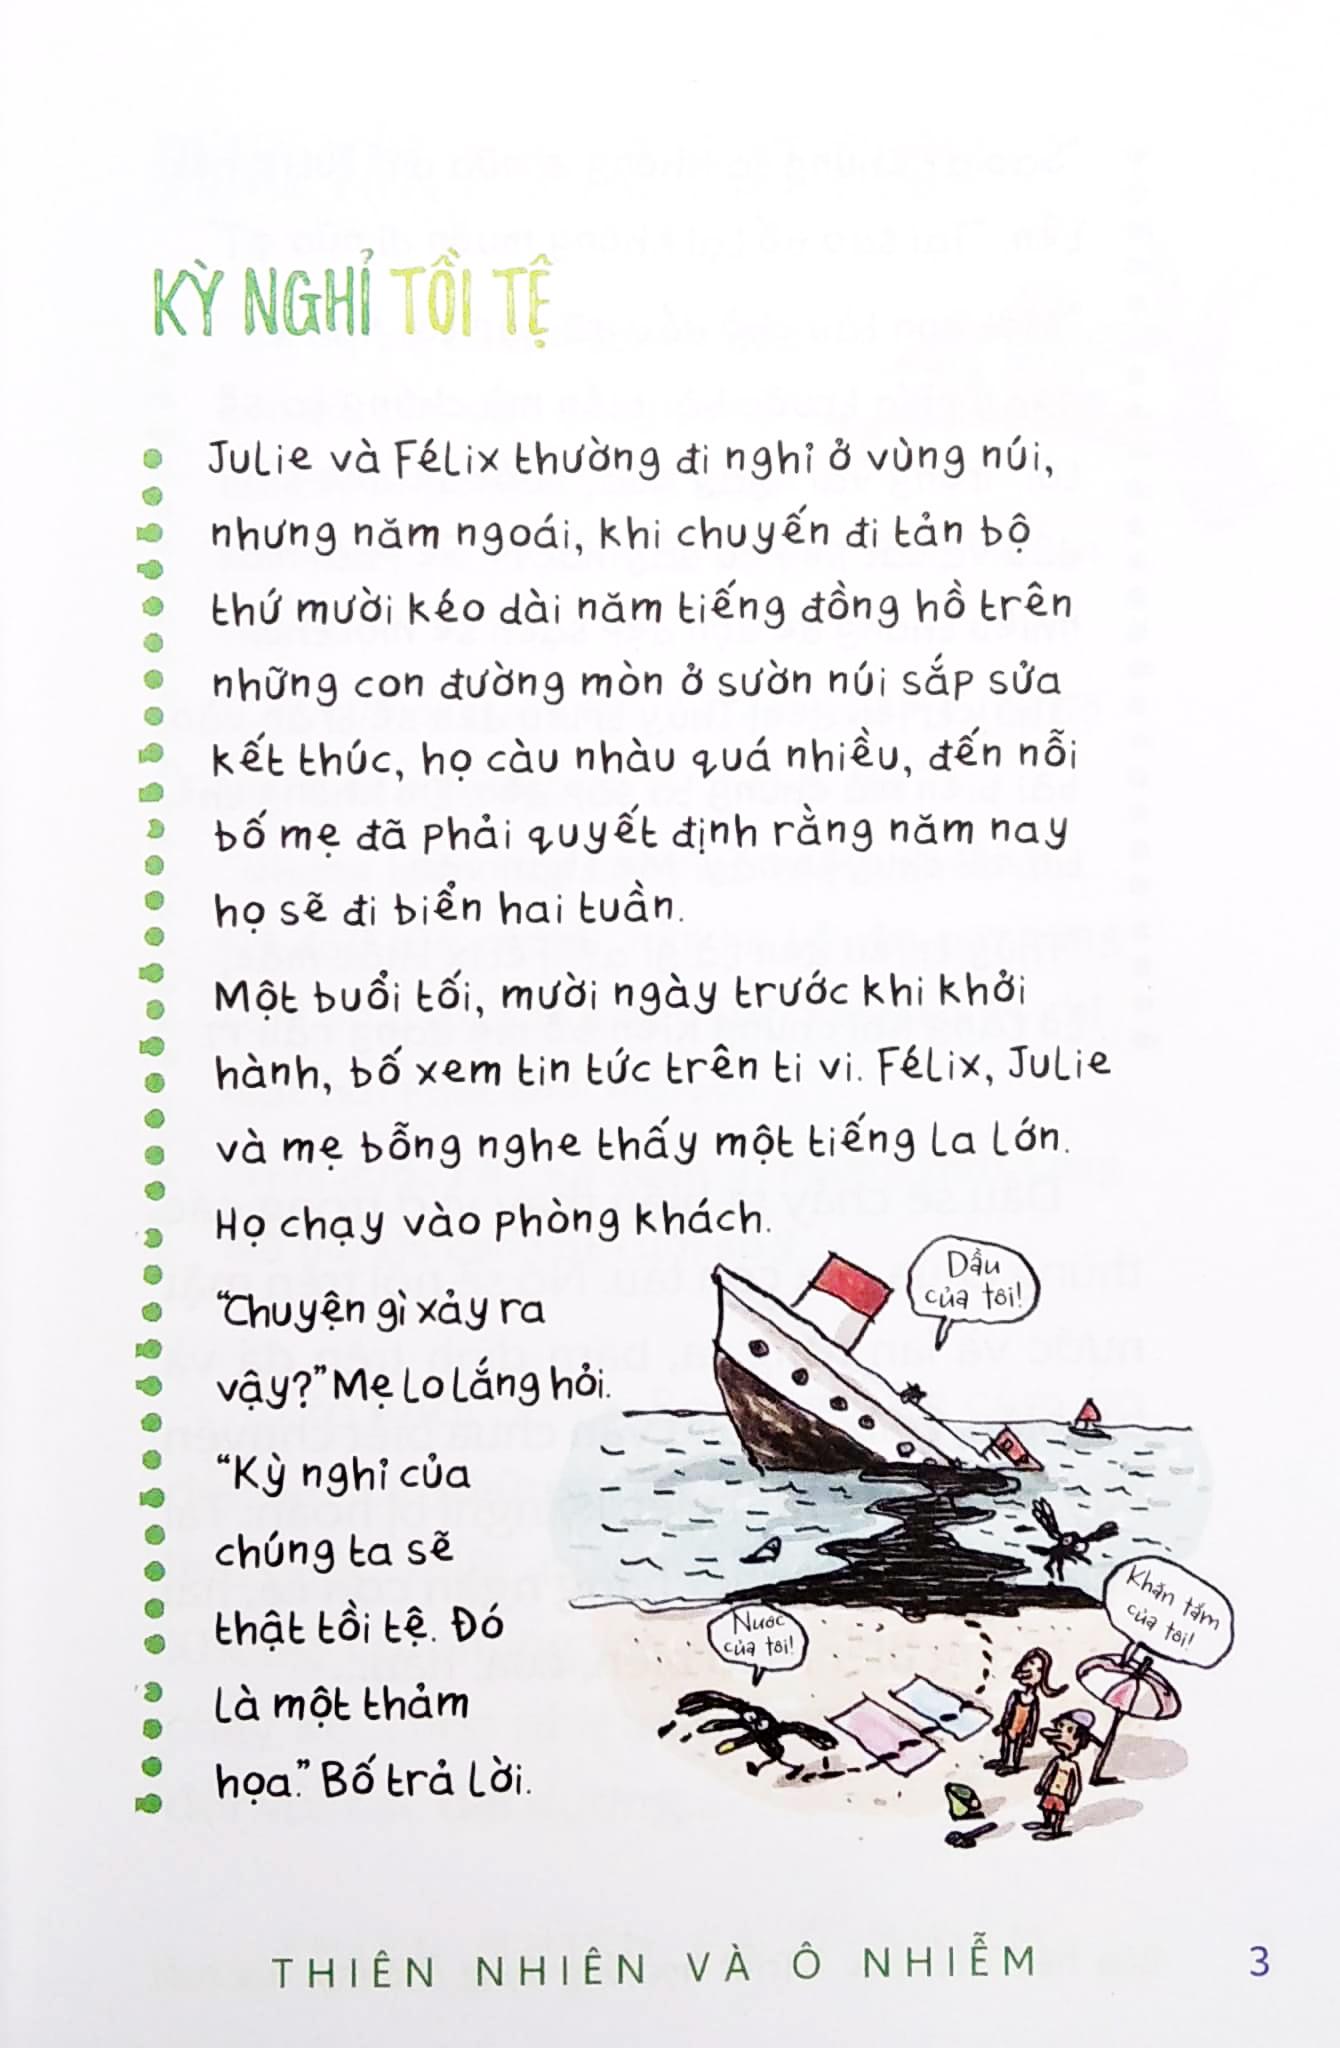 KỲ NGHỈ TỒI TỆ
Julie và Félix thường đi nghỉ ở vùng núi,
nhưng năm ngoái, khi chuyến đi tản bộ
thứ mười kéo dài năm tiếng đồng hồ trên
những con đường mòn ở sườn núi sắp sửa
kết thúc, họ càu nhàu quá nhiều, đến nỗi
bố mẹ đã phải quyết định rằng năm nay
họ sẽ đi biển hai tuần.
Một buổi tối, mười ngày trước khi khởi
hành, bố xem tin tức trên ti vi. Félix, Julie
và mẹ bỗng nghe thấy một tiếng la lớn.
Họ chạy vào phòng khách.
“Chuyện gì xảy ra
vậy?” Mẹ lo lắng hỏi.
“Kỳ nghỉ của
chúng ta sẽ
thật tồi tệ. Đó
là một thảm
họa.” Bố trả lời.
Dầu
của tôi!
Khăn tắm
của tôi!
Nước
của tôi!
THIÊN NHIÊN VÀ Ô NHIỄM
3